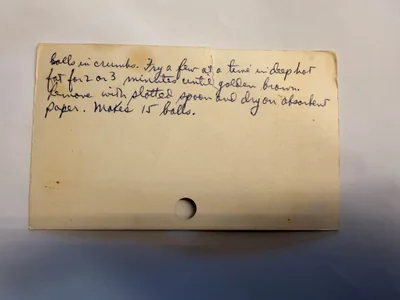 balls in crumbs. Fry a few at a time in deep hot
fat for 2 or 3 minutes until golden brown.
Remove with slotted spoon and dry on absorbent
paper. Makes 15 balls.